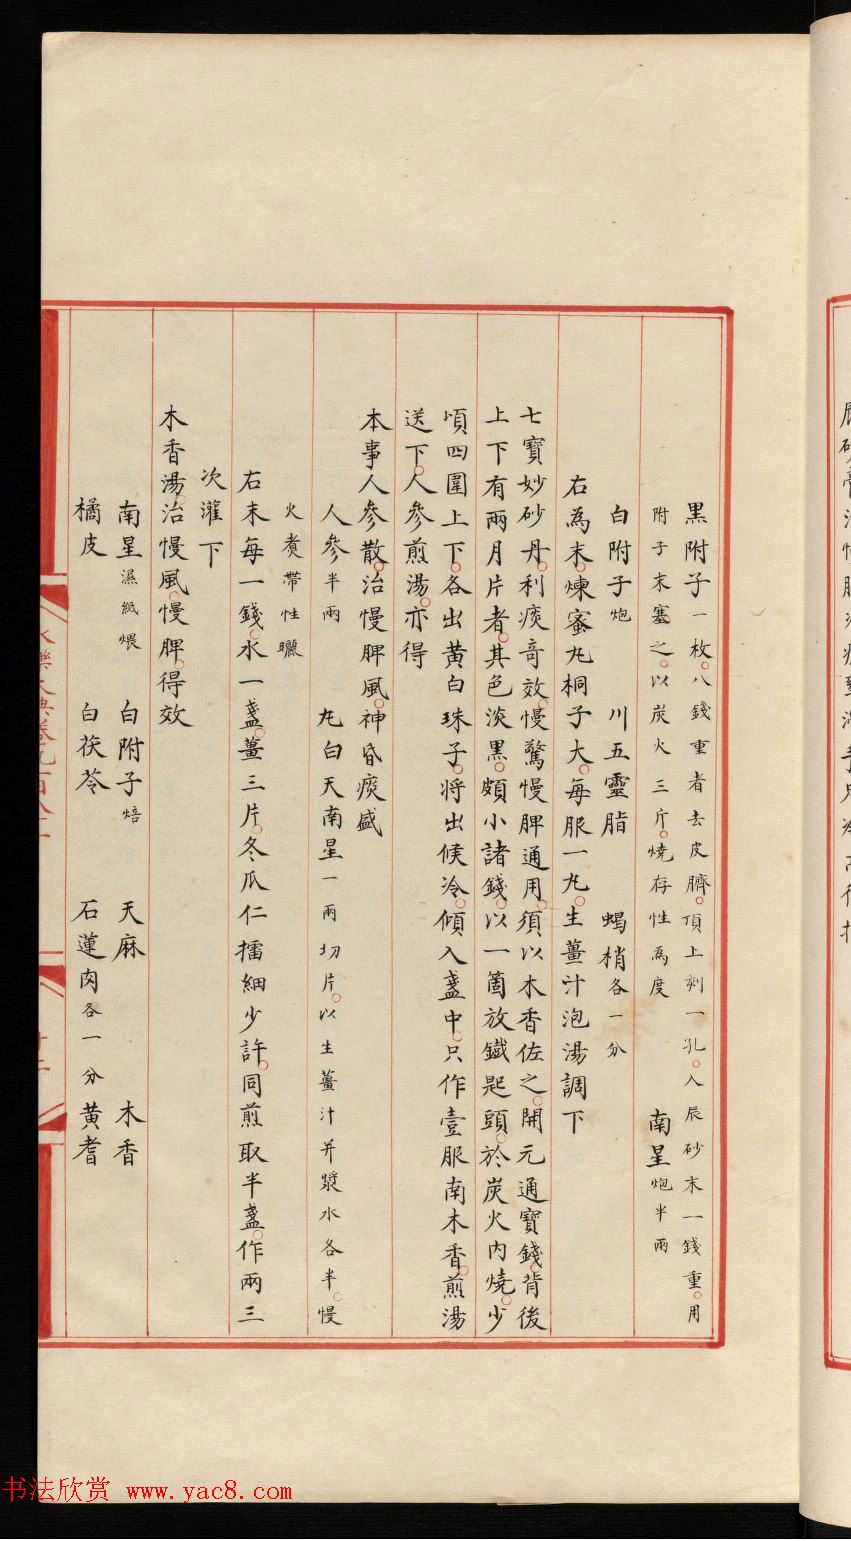 黑附子一枚八錢重者去皮臍頂上刻一孔入辰砂末一錢重用
附子末塞之以炭火三斤燒存性為度 南星炮半兩
白附子炮 川五靈脂 蝎梢各一分
右為末煉蜜丸桐子大每服一丸生薑汁泡湯調下
七寶妙砂丹利痰奇效慢驚慢脾通用須以木香佐之開元通寶錢背後
上下有兩月片者其色淡黑頗小諸錢以一箇放鐵匙頭於炭火內燒少
頃四圍上下各出黃白珠子將出候冷傾入盞中只作壹服南木香煎湯
送下人參煎湯亦得
本事人參散治慢脾風神昏痰盛
人參半兩 尢白天南星一兩切片以生薑汁并漿水各半慢
火煮帶性曬
右末每一錢水一盞薑三片冬瓜仁擂細少許同煎取半盞作兩三
次灌下
木香湯治慢風慢脾得效
南星濕紙煨 白附子焙 天麻 木香
橘皮 白茯苓 石蓮肉各一分 黃耆
永樂大典卷九百八十一
书法欣赏 www.yac8.com